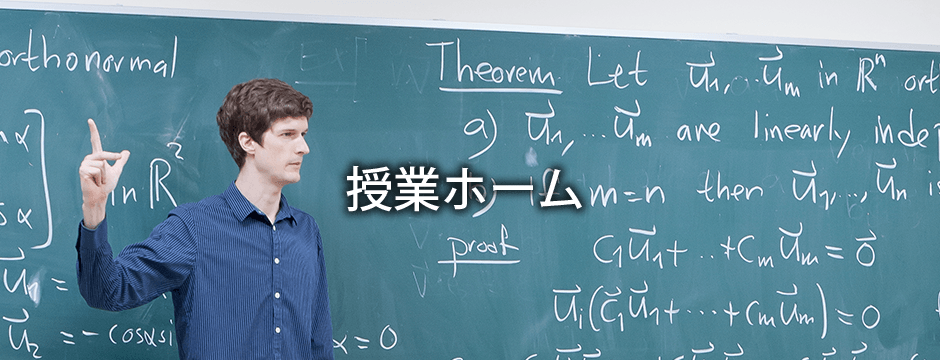 orthonormal
in ℝ²
= -cosα si
x = 0
授業ホーム
Theorem Let u⃗₁,...u⃗ₘ in ℝⁿ ort
a) u⃗₁,...u⃗ₘ are linearly inde
m=n then u⃗₁,...,u⃗ₙ
proof c₁u⃗₁+...+cₘu⃗ₘ=0⃗
u⃗ᵢ(c⃗₁u⃗₁+...+cₘu⃗ₘ)=0